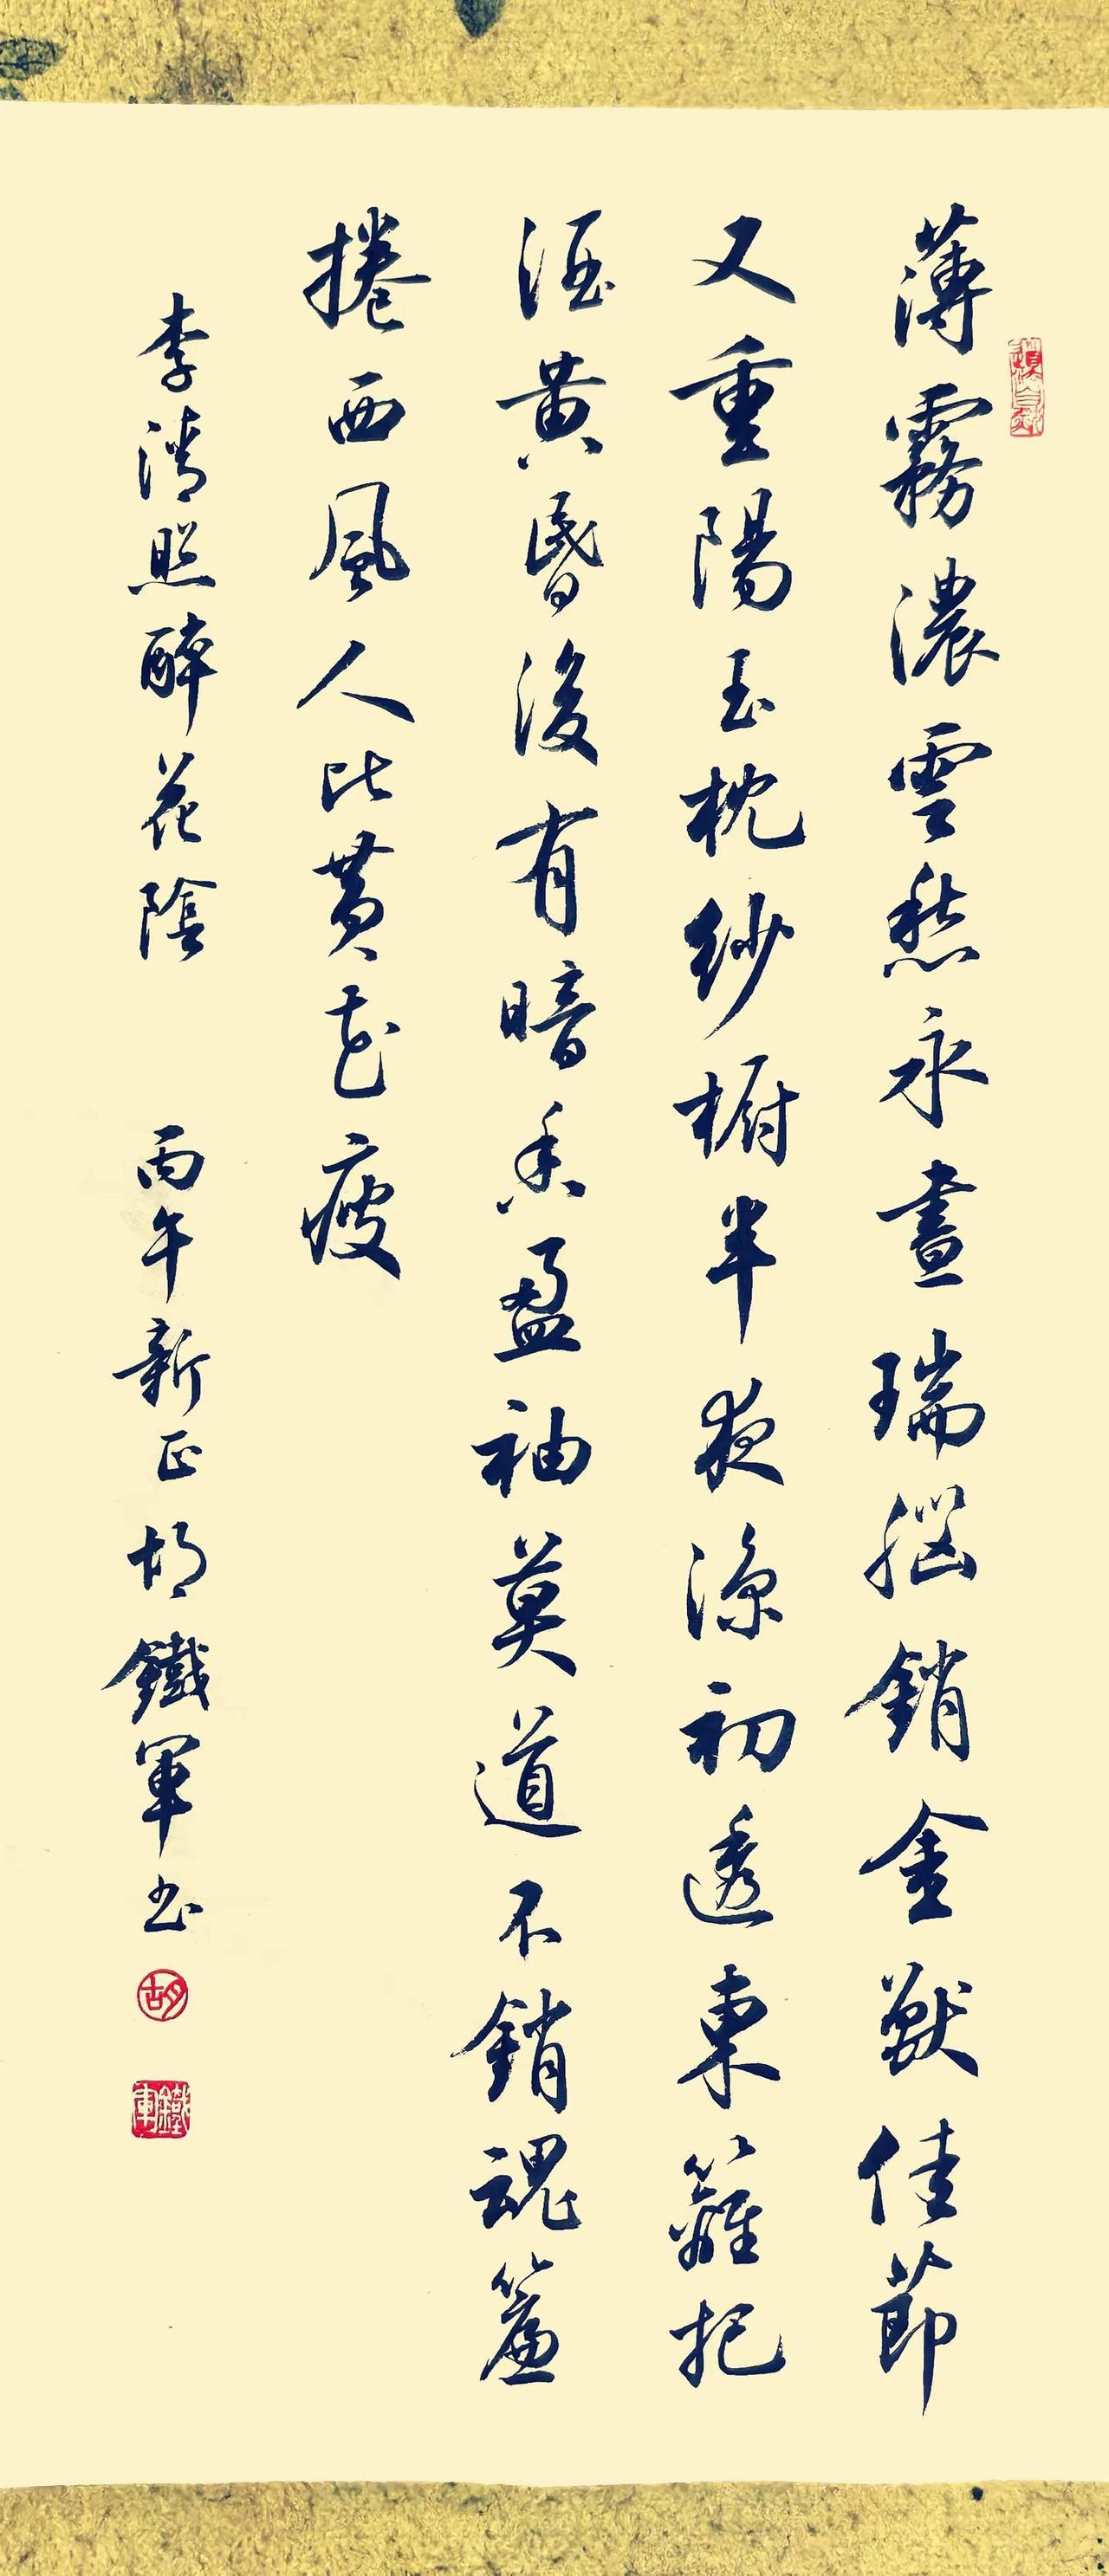 薄霧濃雲愁永晝瑞腦銷金獸佳節
又重陽玉枕紗橱半夜涼初透東籬把
酒黃昏後有暗香盈袖莫道不銷魂簾
捲西風人比黃花瘦
李清照醉花陰 丙午新正胡鐵軍书
胡
鐵軍